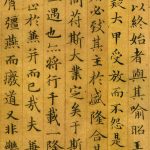 以終始者與其喻昭王
疑大甲受放而不怨是
必致其主於盛隆合其
符斯大業定矣于斯
遇也亦將行千載一隆
止於兼并而已哉夫兼
彊燕而廢道又非樂